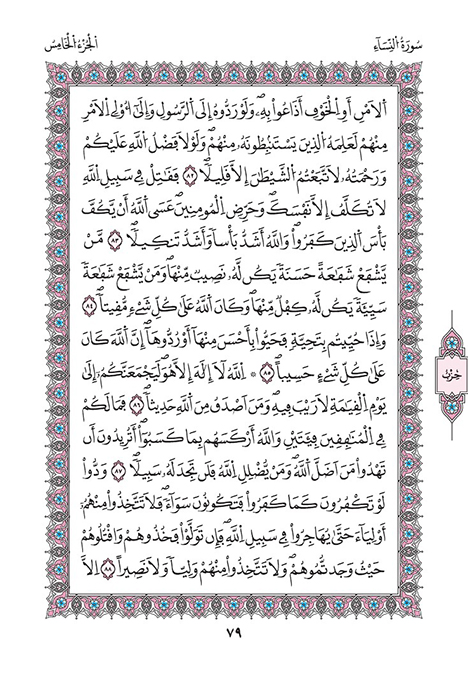 سُورَةُ النِّسَاءِ
الجُزْءُ الخَامِسُ
اَ۬لَامْنِ أَوِ اِ۬لْخَوْفِ أَذَاعُواْ بِهِۦۖ وَلَوْ رَدُّوهُ إِلَى اَ۬لرَّسُولِ وَإِلَىٰٓ أُوْلِے اِ۬لَامْرِ
مِنْهُمْ لَعَلِمَهُ اُ۬لذِينَ يَسْتَنۢبِطُونَهُۥ مِنْهُمْۖ وَلَوْلَا فَضْلُ اُ۬للَّهِ عَلَيْكُمْ
وَرَحْمَتُهُۥ لَاتَّبَعْتُمُ اُ۬لشَّيْطَٰنَ إِلَّا قَلِيلاًۖ ٨٢ فَقَٰتِلْ فِے سَبِيلِ اِ۬للَّهِ
لَا تُكَلَّفُ إِلَّا نَفْسَكَۖ وَحَرِّضِ اِ۬لْمُومِنِينَ عَسَى اَ۬للَّهُ أَنْ يَّكُفَّ
بَأْسَ اَ۬لذِينَ كَفَرُواْۖ وَاللَّهُ أَشَدُّ بَأْساً وَأَشَدُّ تَنكِيلاًۖ ٨٣ مَّنْ
يَّشْفَعْ شَفَٰعَةً حَسَنَةً يَكُن لَّهُۥ نَصِيبٞ مِّنْهَاۖ وَمَنْ يَّشْفَعْ شَفَٰعَةٗ
سَيِّئَةٗ يَكُن لَّهُۥ كِفْلٞ مِّنْهَاۖ وَكَانَ اَ۬للَّهُ عَلَىٰ كُلِّ شَےْءٖ مُّقِيتاًۖ ٨٤
وَإِذَا حُيِّيتُم بِتَحِيَّةٖ فَحَيُّواْ بِأَحْسَنَ مِنْهَآ أَوْ رُدُّوهَآۖ إِنَّ اَ۬للَّهَ كَانَ
عَلَىٰ كُلِّ شَےْءٍ حَسِيباًۖ ٨٥ اِ۬للَّهُ لَآ إِلَٰهَ إِلَّا هُوَۖ لَيَجْمَعَنَّكُمْ إِلَىٰ
يَوْمِ اِ۬لْقِيَٰمَةِ لَا رَيْبَ فِيهِۖ وَمَنَ اَصْدَقُ مِنَ اَ۬للَّهِ حَدِيثاًۖ ٨٦ فَمَا لَكُمْ
فِے اِ۬لْمُنَٰفِقِينَ فِئَتَيْنِ وَاللَّهُ أَرْكَسَهُم بِمَا كَسَبُوٓاْۖ أَتُرِيدُونَ أَن
تَهْدُواْ مَنَ اَضَلَّ اَ۬للَّهُۖ وَمَنْ يُّضْلِلِ اِ۬للَّهُ فَلَن تَجِدَ لَهُۥ سَبِيلاًۖ ٨٧ وَدُّواْ
لَوْ تَكْفُرُونَ كَمَا كَفَرُواْ فَتَكُونُونَ سَوَآءٗۖ فَلَا تَتَّخِذُواْ مِنْهُمُۥٓ
أَوْلِيَآءَ حَتَّىٰ يُهَاجِرُواْ فِے سَبِيلِ اِ۬للَّهِۖ فَإِن تَوَلَّوْاْ فَخُذُوهُمْ وَاقْتُلُوهُمْ
حَيْثُ وَجَدتُّمُوهُمْۖ وَلَا تَتَّخِذُواْ مِنْهُمْ وَلِيّاٗ وَلَا نَصِيراًۖ ٨٨ إِلَّا
حِزْبٌ
٧٩